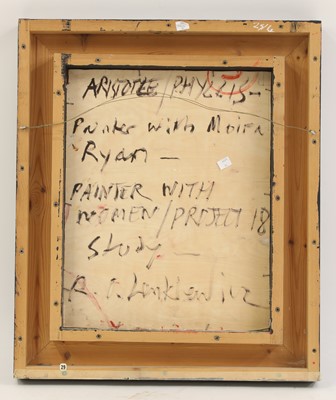 ARISTOTLE/PHYLLIS—
Painter with Moira
Ryan —
PAINTER WITH
WOMEN/PROJECT 18
Study —
R. O. Lenkiewicz
29